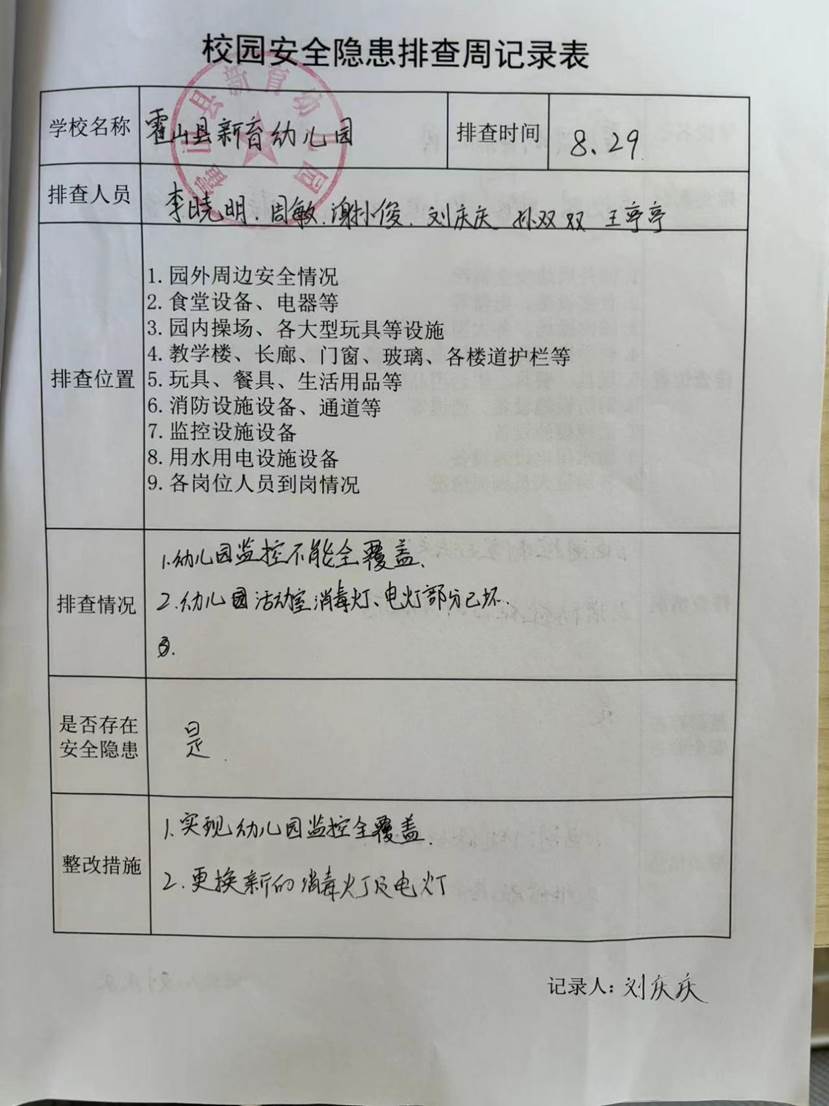 校园安全隐患排查周记录表
学校名称 霍山县新育幼儿园 排查时间 8.29.
霍山县新育幼儿园
排查人员 李晓明.周敏.谢小俊.刘庆庆 孙双双 王亭亭
排查位置
1.园外周边安全情况
2.食堂设备、电器等
3.园内操场、各大型玩具等设施
4.教学楼、长廊、门窗、玻璃、各楼道护栏等
5.玩具、餐具、生活用品等
6.消防设施设备、通道等
7.监控设施设备
8.用水用电设施设备
9.各岗位人员到岗情况
排查情况
1.幼儿园监控不能全覆盖.
2.幼儿园活动室消毒灯、电灯部分已坏.
3.
是否存在
安全隐患
是.
整改措施
1.实现幼儿园监控全覆盖.
2.更换新的消毒灯及电灯
记录人:刘庆庆